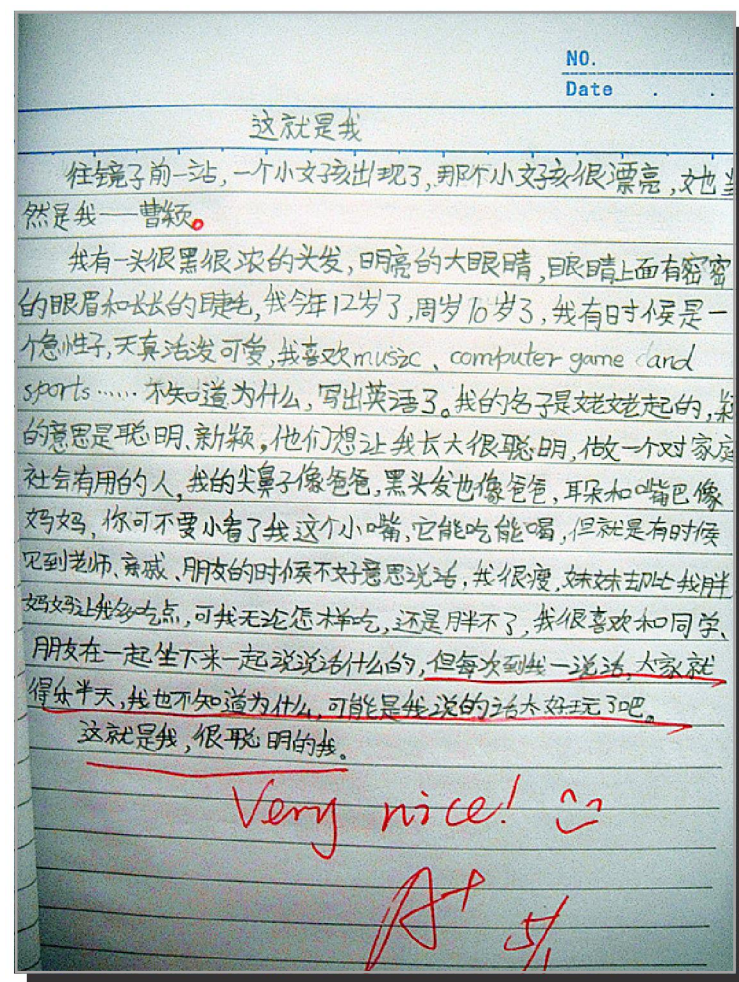 NO.
Date . .
这就是我
往镜子前一站，一个小女孩出现了，那个小女孩很漂亮，她当
然是我——曹颖。
我有一头很黑很浓的头发，明亮的大眼睛，眼睛上面有密密
的眼眉和长长的睫毛，我今年12岁了，周岁10岁了，我有时候是一
个急性子，天真活泼可爱，我喜欢music、computer game and
sports……不知道为什么，写出英语了。我的名子是姥姥起的，颖
的意思是聪明、新颖，他们想让我长大很聪明，做一个对家庭
社会有用的人，我的尖鼻子像爸爸，黑头发也像爸爸，耳朵和嘴巴像
妈妈，你可不要小看了我这个小嘴，它能吃能喝，但就是有时候
见到老师、亲戚、朋友的时候不好意思说话，我很瘦，妹妹却比我胖
妈妈让我多吃点，可我无论怎样吃，还是胖不了，我很喜欢和同学、
朋友在一起坐下来一起说说话什么的，但每次到我一说话，大家就
得乐半天，我也不知道为什么，可能是我说的话太好玩了吧。
这就是我，很聪明的我。
Very nice!
A+
5/1